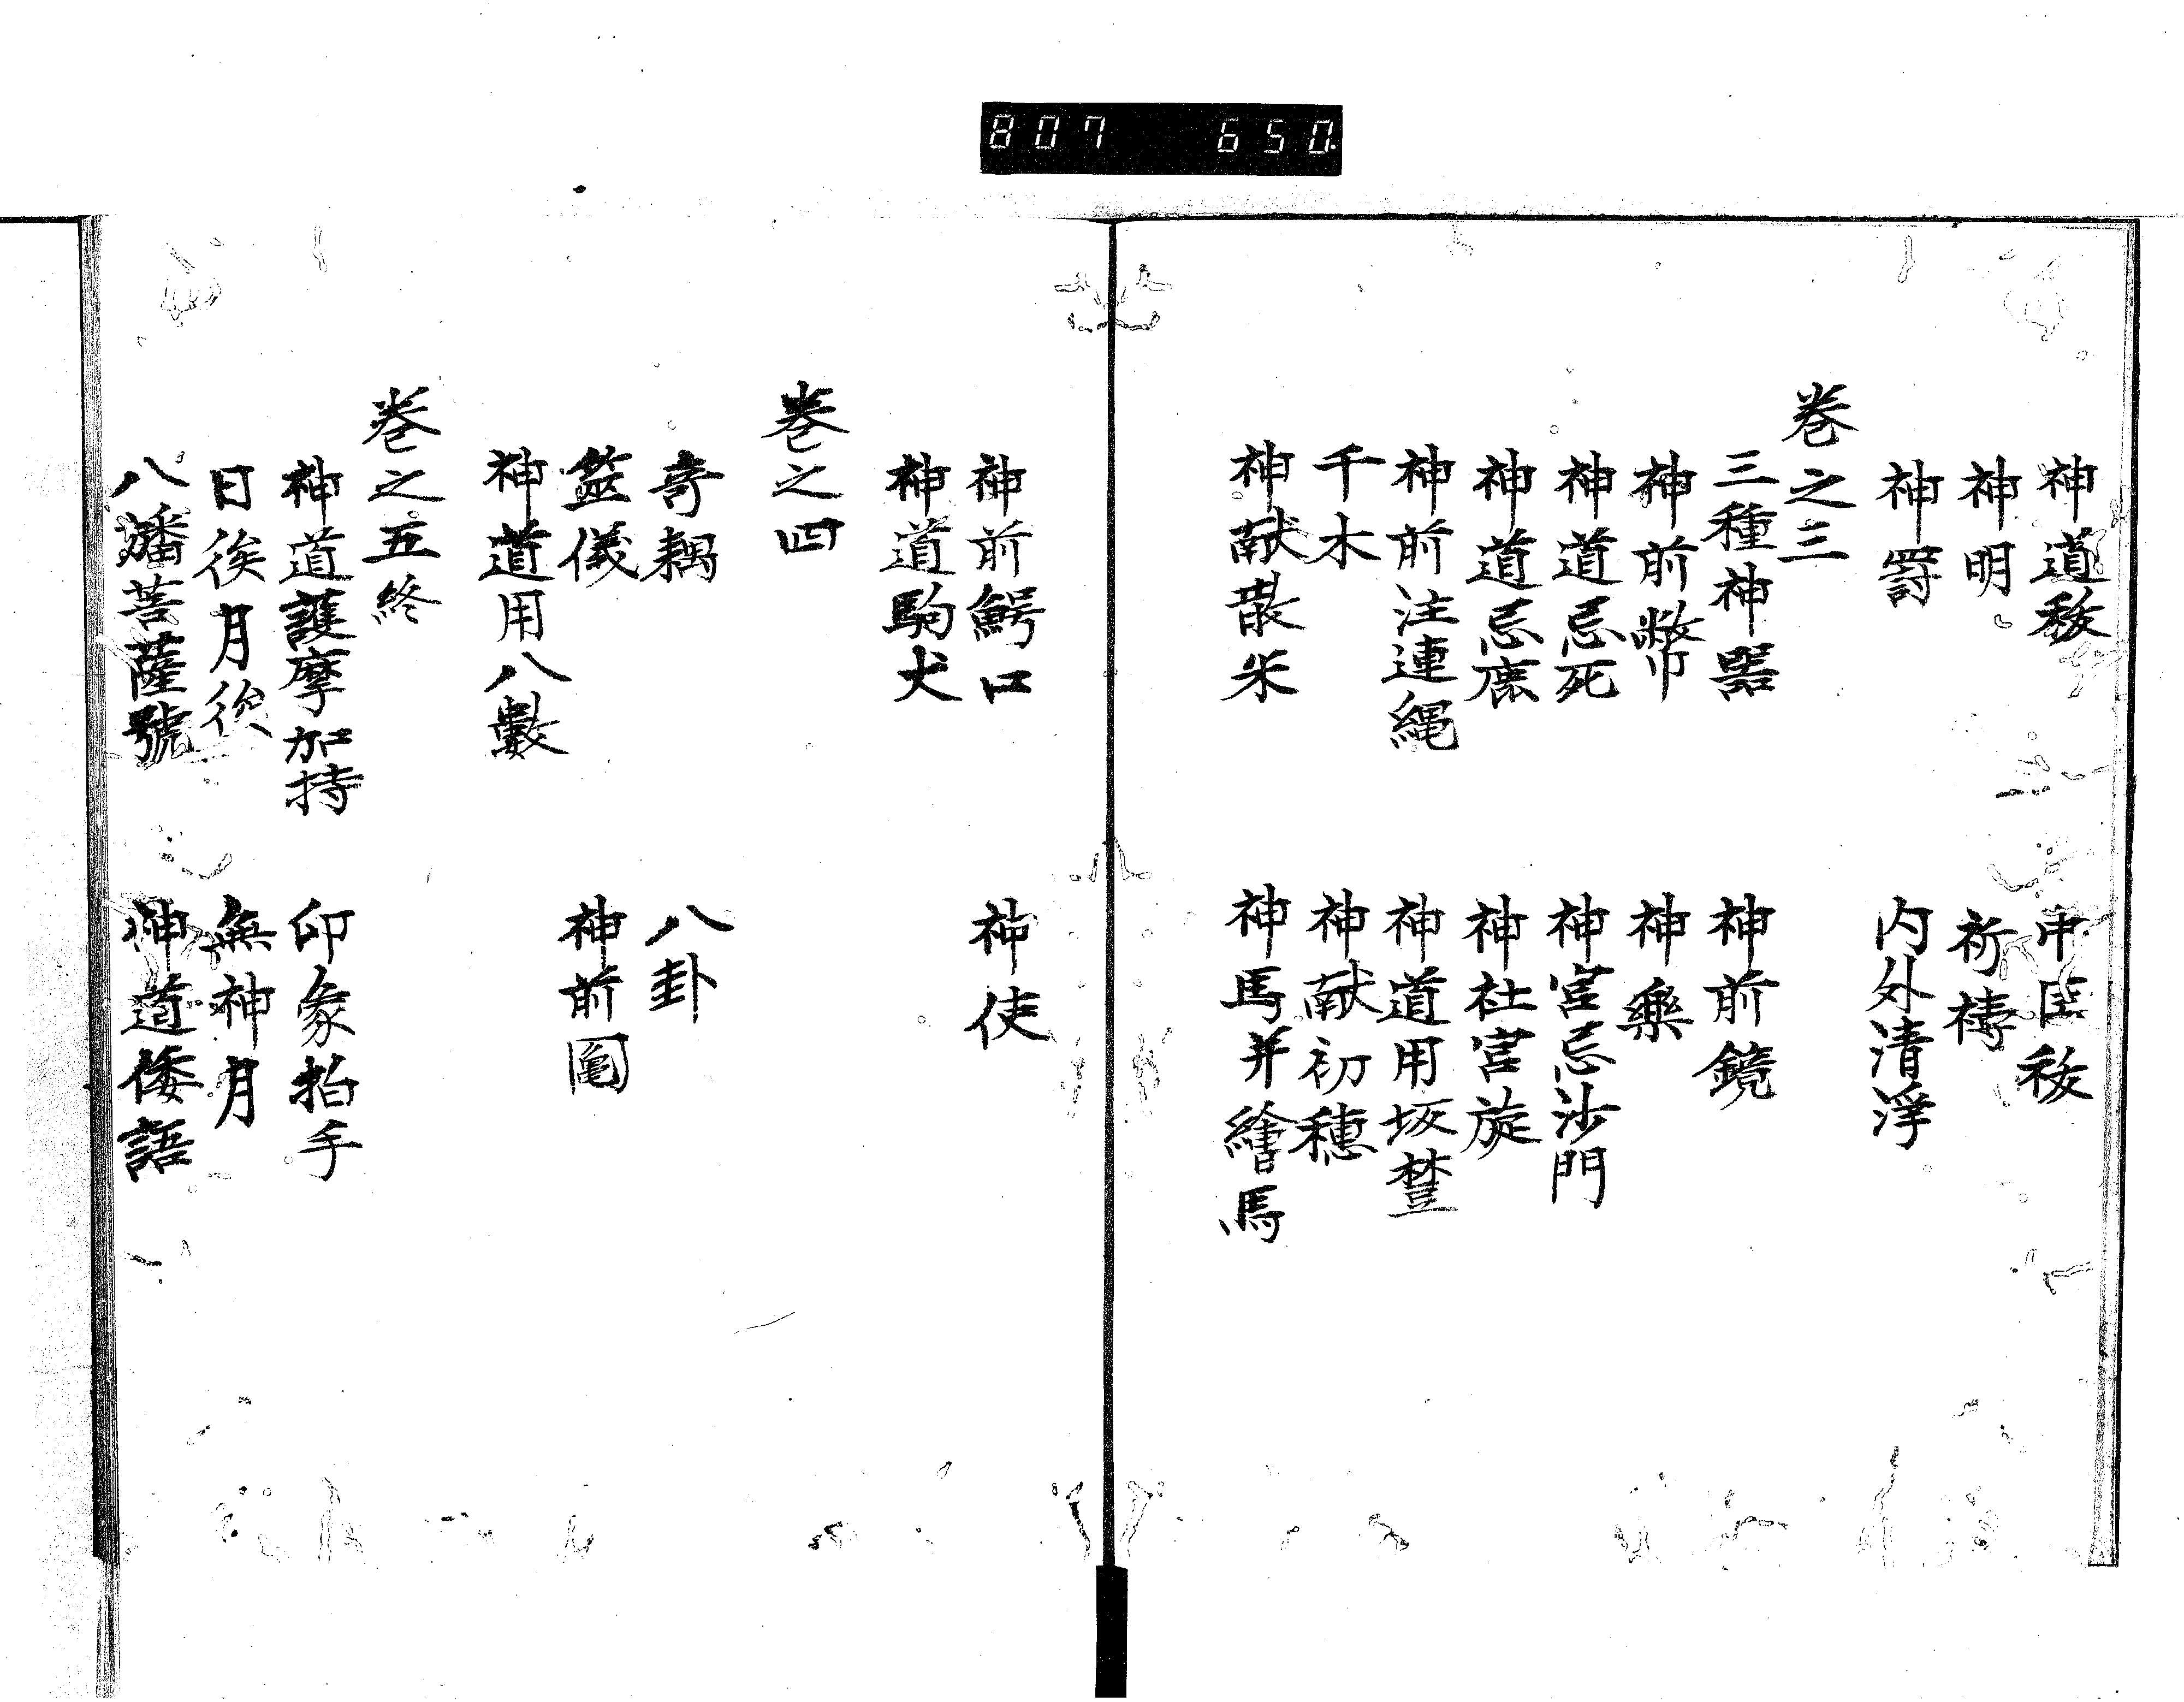 807 650.
神道秡 中臣秡
神明 祈禱
神罸 内外清淨
巻之三
三種神器 神前鏡
神前幣 神樂
神道忌死 神宮忌沙門
神道忌鹿 神社宮旋
神前注連繩 神道用坂
千木 神献初穂
神献散米 神馬并繪馬
神前鰐口 神使
神道駒犬
巻之四
奇耦 八卦
筮儀 神前圖
神道用八數
巻之五終
神道護摩加持 印象拍手
日待月待 無神月
八幡菩薩號 神道倭語